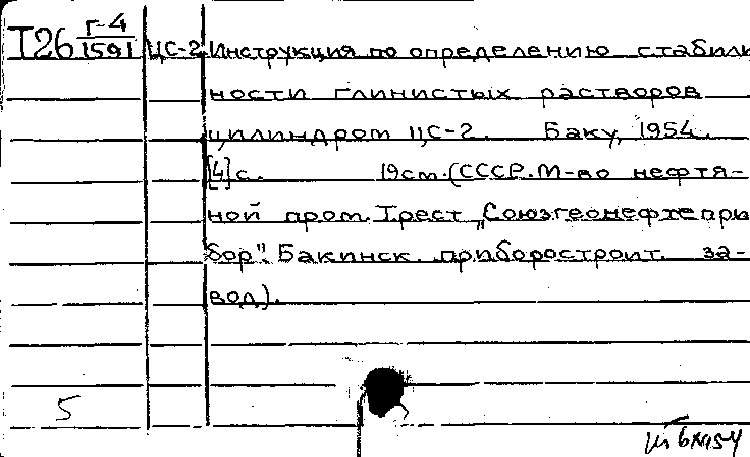 Т26 Г-4/1591 ЦС-2 Инструкция по определению стабили
ности глинистых растворов
цилиндром ЦС-2. Баку, 1954.
[4]с. 19см.(СССР.М-во нефтя-
ной пром. Трест „Союзгеонефтепри
бор". Бакинск. приборостроит. за-
вод).
5